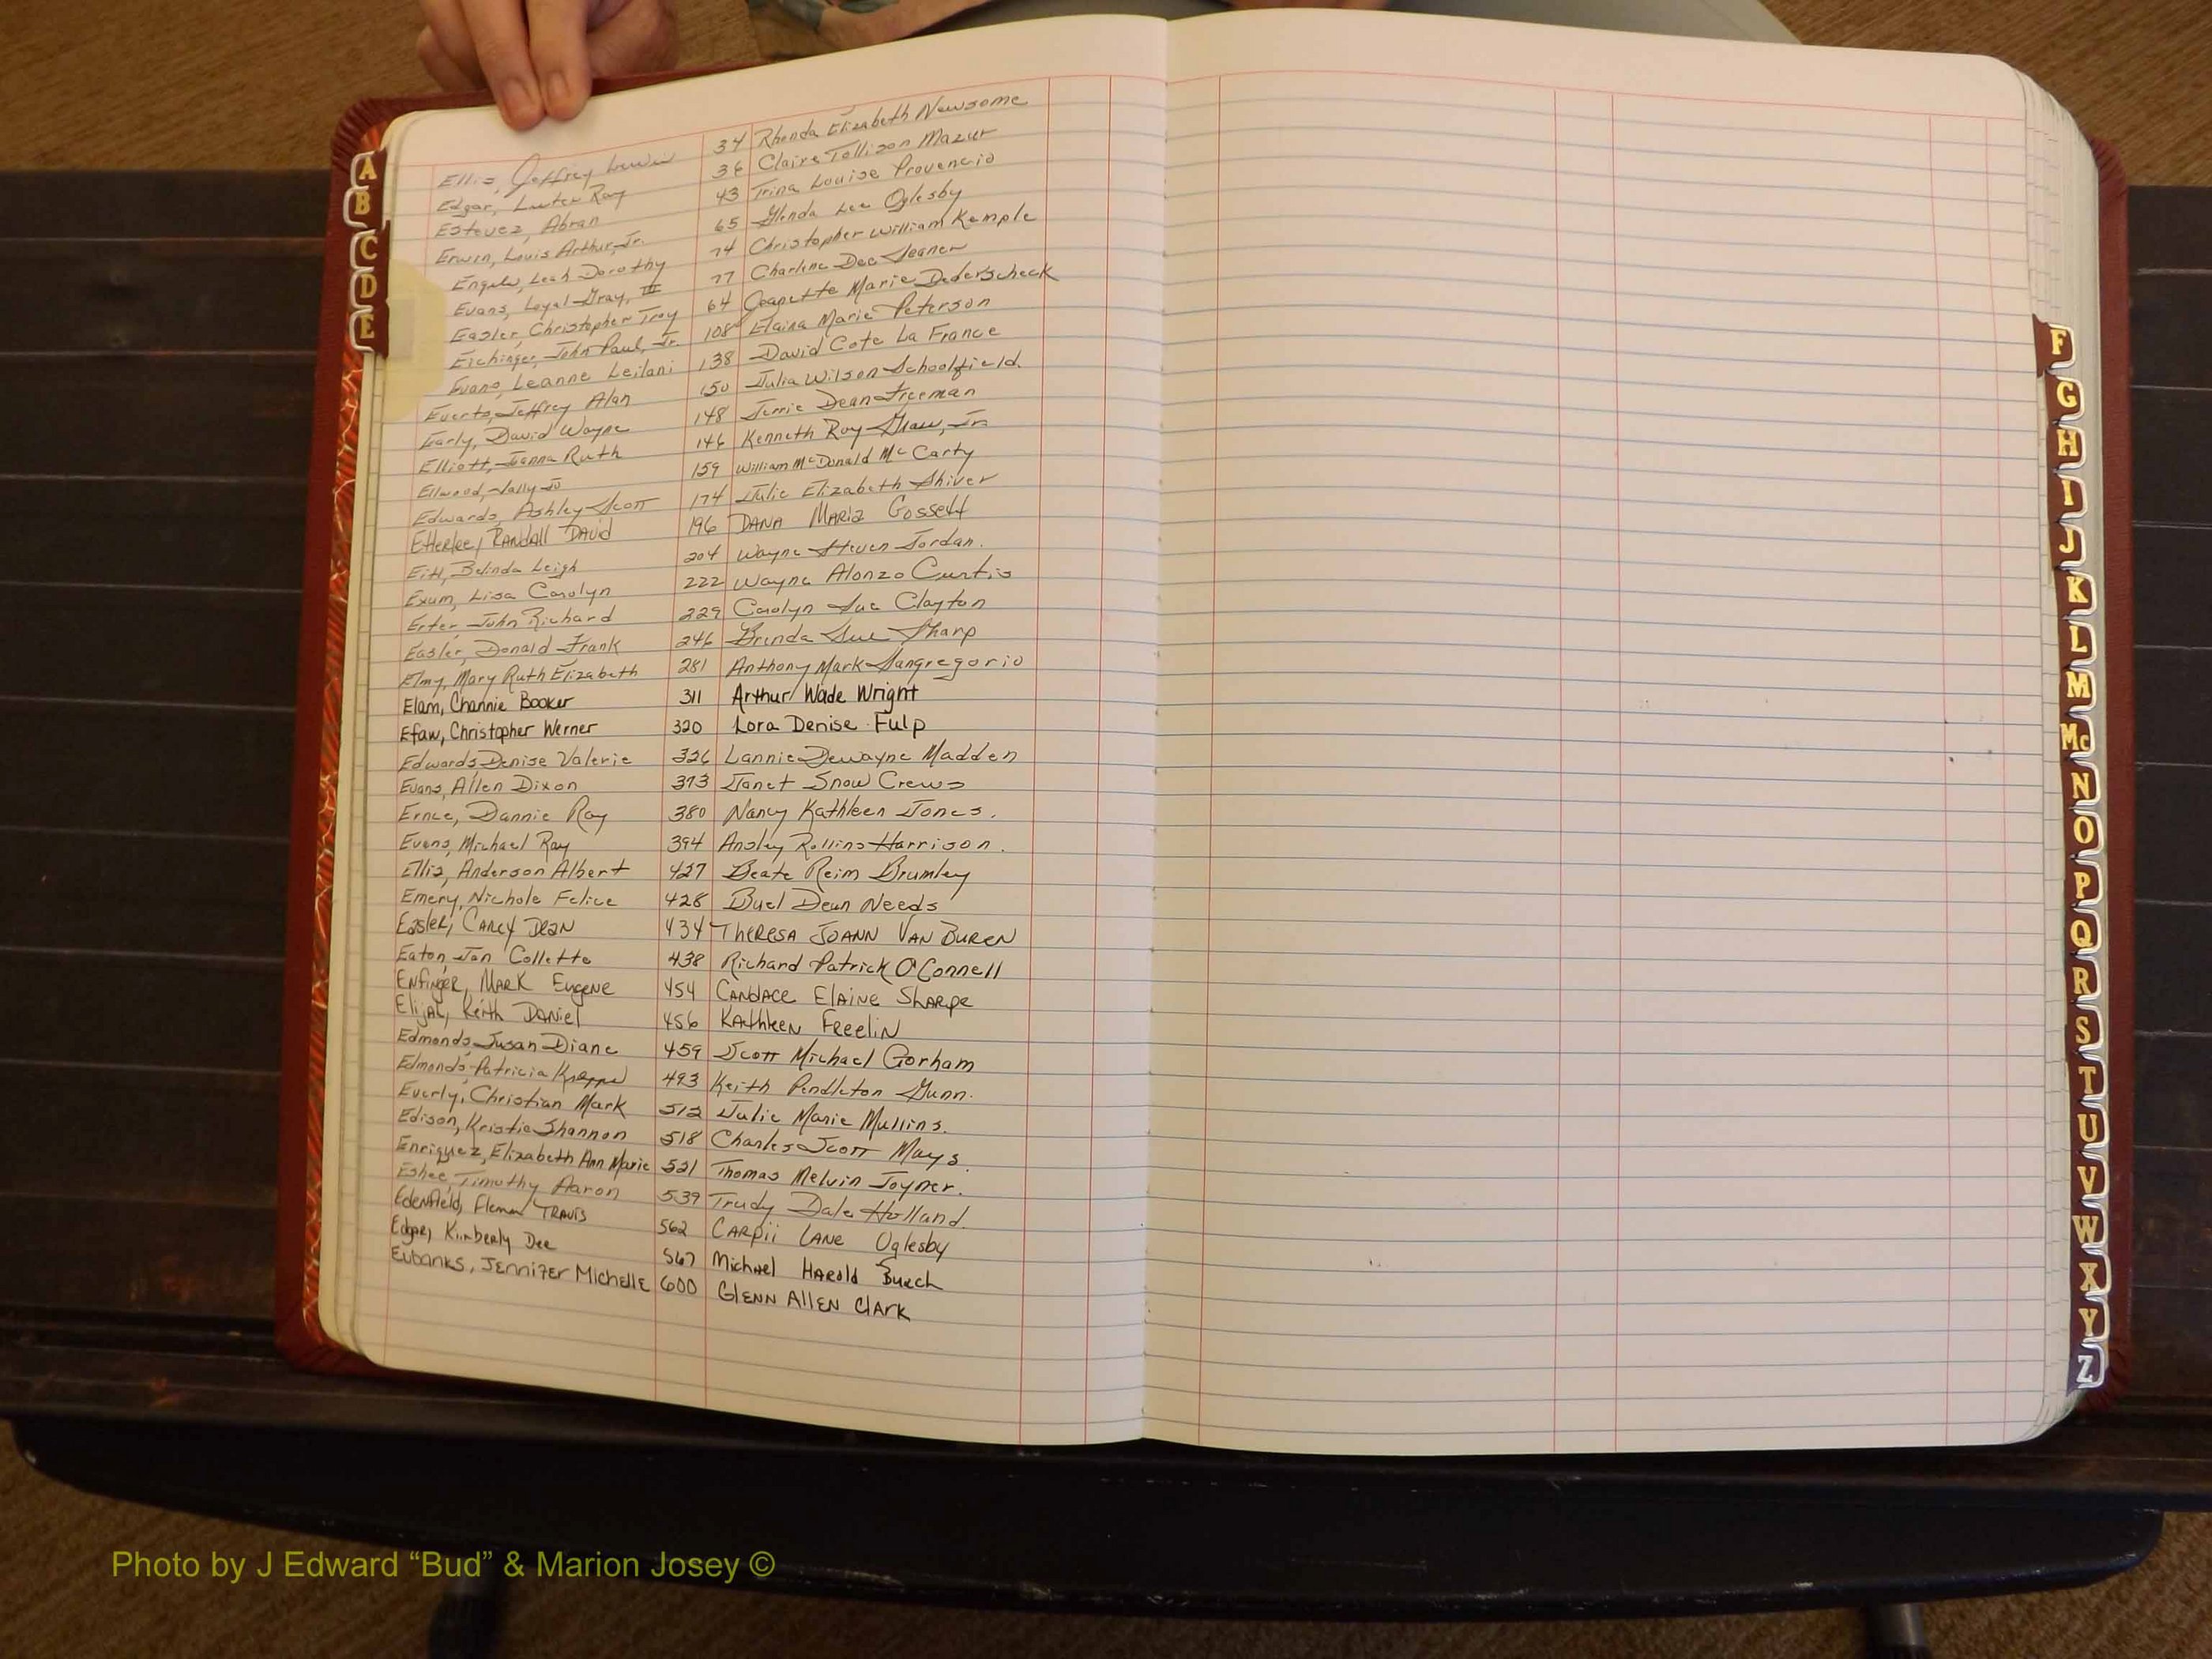 Ellis, Jeffrey Lewis 34 Rhonda Elizabeth Newsome
Edgar, Luther Ray 36 Claire Tollison Mazur
Estevez, Abran 43 Trina Louise Provencio
Erwin, Louis Arthur, Jr. 65 Glenda Lee Oglesby
Engels, Leah Dorothy 74 Christopher William Kemple
Evans, Loyal Gray, III 77 Charline Dee
Easler, Christopher Troy 64 Jeanette Marie Dederscheck
Eichinger, John Paul, Jr. 108 Elaina Marie Peterson
Evans, Leanne Leilani 138 David Cote La France
Everts, Jeffrey Alan 150 Julia Wilson Schoolfield.
Early, David Wayne 148 Jerrie Dean Freeman
Elliott, Janna Ruth 146 Kenneth Ray Jr.
Ellwood, Sally Jo 159 William McDonald McCarty
Edwards, Ashley Scott 174 Julie Elizabeth Shiver
Etterlee, RANdAll DAvid 196 DANA MARIa Gossett
Eitt, Belinda Leigh 204 Wayne Steven Jordan.
Exum, Lisa Carolyn 222 Wayne Alonzo Curtis
Erter, John Richard 229 Carolyn Sue Clayton
Easler, Donald Frank 246 Brenda Sue Sharp
Elmy, Mary Ruth Elizabeth 281 Anthony Mark Sangregorio
Elam, Channie Booker 311 Arthur Wade Wright
Efaw, Christopher Werner 320 Lora Denise Fulp
Edwards Denise Valerie 326 Lannie Dewayne Madden
Evans, Allen Dixon 373 Janet Snow Crews
Ernce, Dannie Ray 380 Nancy Kathleen Jones.
Evans, Michael Ray 394 Ansley Rollins Harrison.
Ellis, Anderson Albert 427 Beate Reim Brumley
Emery, Nichole Felice 428 Buel Dean Needs
Easler, CAREY DEAN 434 THERESA JOANN VAN BUREN
Eaton, Jan Collette 438 Richard Patrick O'Connell
ENfinger, MARK EugENE 454 CANDACE ElAiNE SHARpe
Elijah, Keith DANiel 456 KAthleEN FReeliN
Edmonds, Susan Diane 459 Scott Michael Gorham
Edmonds, Patricia 493 Keith Pendleton Gunn.
Everly, Christian Mark 512 Julie Marie Mullins.
Edison, Kristie Shannon 518 Charles Scott Mays.
Enriquez, Elizabeth Ann Marie 521 Thomas Melvin Joyner.
Eshee, Timothy Aaron 539 Trudy Dale Holland.
EdenfiEld, TRAVis 562 CARpii LANE Oglesby
Edgar, Kimberly Dee 567 MichAel HARold BURch
EubANKS, JENNifER MichellE 600 GlENN AllEN ClARK
A
B
C
D
E
F
G
H
I
J
K
L
M
Mc
N
O
P
Q
R
S
T
U
V
W
X
Y
Z
Photo by J Edward “Bud” & Marion Josey ©